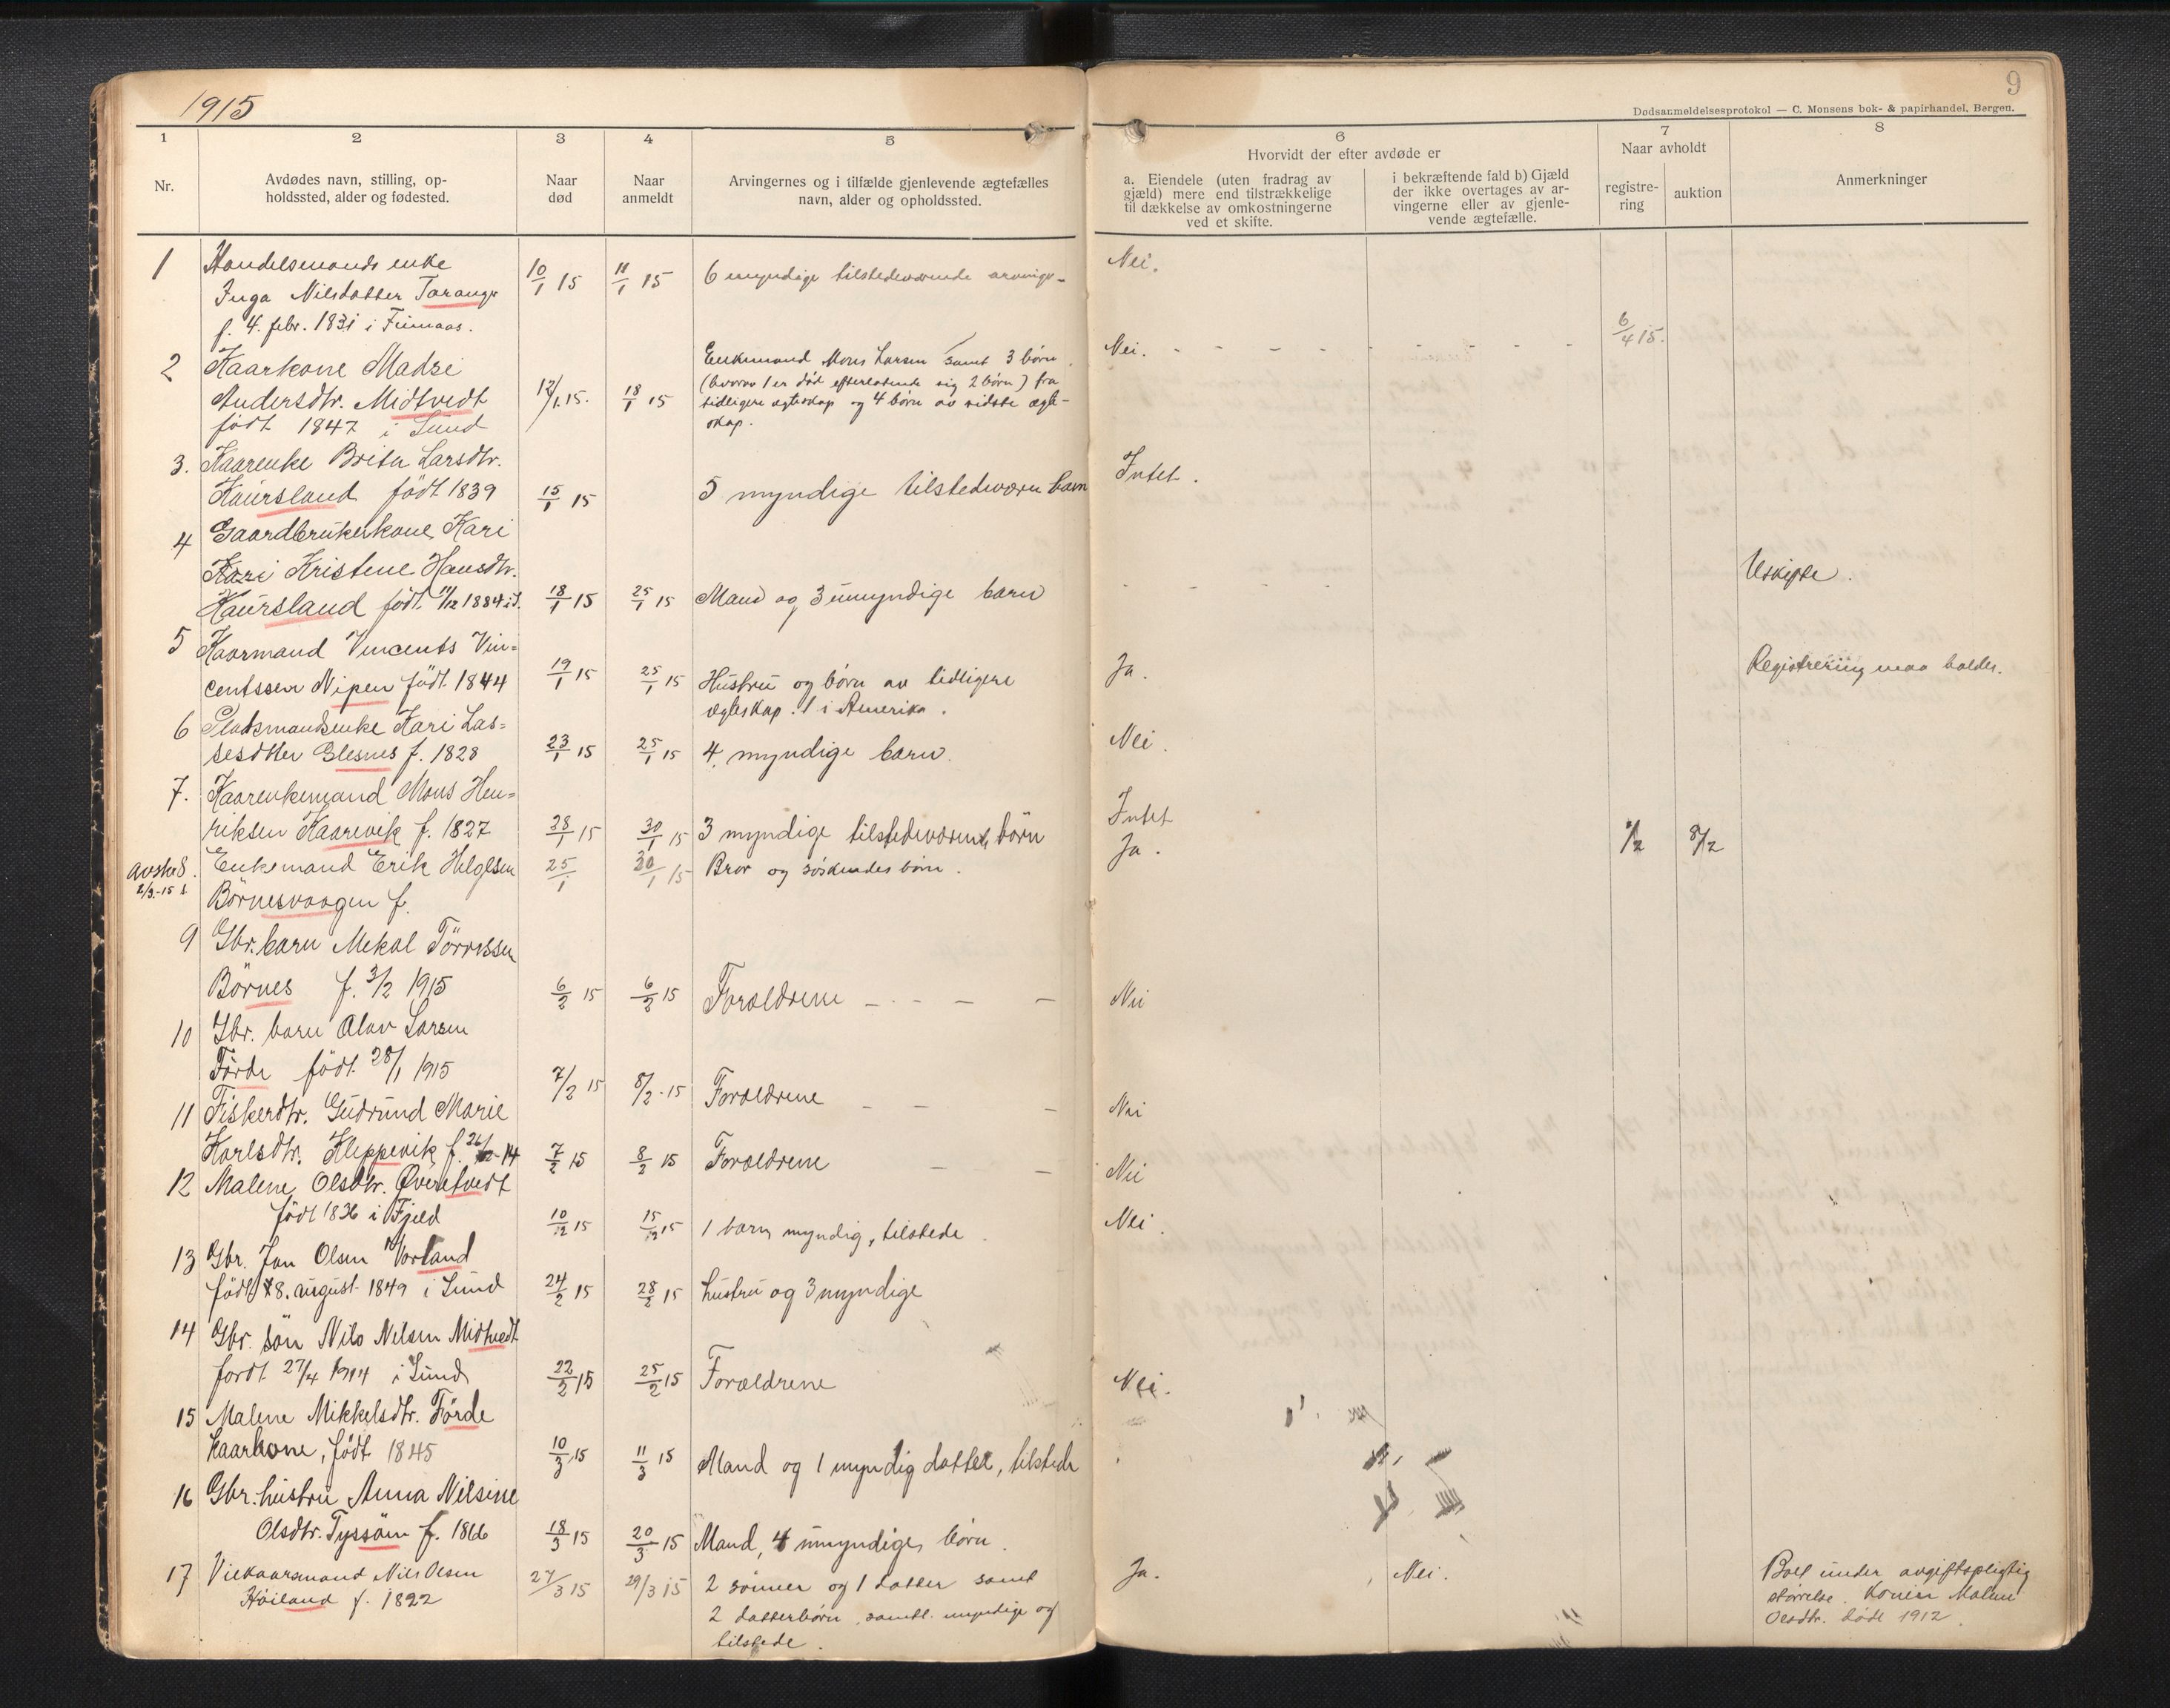 1915
9
Dødsanmeldelsesprotokol — C. Monsens bok- & papirhandel, Bergen.
1 2 3 4 5 6 7 8
Nr.
Avdødes navn, stilling, op-
holdssted, alder og fødested.
Naar
død
Naar
anmeldt
Arvingernes og i tilfælde gjenlevende ægtefælles
navn, alder og opholdssted.
Hvorvidt der efter avdøde er
a. Eiendele (uten fradrag av
gjæld) mere end tilstrækkelige
til dækkelse av omkostningerne
ved et skifte.
i bekræftende fald b) Gjæld
der ikke overtages av ar-
vingerne eller av gjenle-
vende ægtefælle.
Naar avholdt
registre-
ring
auktion
Anmerkninger
1 Handelsmands enke
Inga Nilsdatter Toranger 10/1 15 11/1 15 6 myndige tilstedeværende arvinge- Nei.
f. 4. febr. 1831 i
2 Kaarkone Madsi Enkemand Mons Larsen samt 3 børn Nei. - - - - - - - - - 6/4 15.
Andersdtr. Midtvedt 12/1 15. 18/1 15 (hvorav 1 er død efterlatende sig 2 børn) fra
født 1847 i Sund tidligere egteskap og 4 børn av sidste egte-
skap.
3. Kaarenke Brita Larsdtr.
Kaursland født 1839 15/1 15 5 myndige tilstedeværn barn Intet.
4 Gaardbrukerkone Kari
Kari Kristene Hansdtr.
Kaursland født 11/12 1884 i S. 18/1 15 25/1 15 Mand og 3 umyndige barn - - Uskifte.
5 Kaarmand Vincents Vin=
centssen Nipen født 1844 19/1 15 25/1 15 Hustru og børn av tidligere Ja. Registrering maa holdes.
egteskap. 1 i Amerika.
6 Pladsmandsenke Kari Las=
sesdtter Glesnes f. 1828 23/1 15 25/1 15 4 myndige barn. Nei.
7. Kaarenkemand Mons Hen=
riksen Kaarevik f. 1827 28/1 15 30/1 15 3 myndige tilstedeværende børn Intet
8. Enkemand Erik Helgesen 25/1 30/1 15 Bror og søskendes børn. Ja. 1/2 8/2
2/3-15
Börnesvaagen f.
9 Gbr. barn Mekal Törrissen
Börnes f. 3/2 1915 6/2 15 6/2 15 Foroeldrene - - - - Nei
10 Gbr. barn Olav Larsen
Förde född 28/1 1915 7/2 15 8/2-15 Foroeldrene - - - Nei
11 Fiskerdtr. Gudrund Marie
Karlsdtr. Kleppevik f. 26/12-14 7/2 15 8/2 15 Foroeldrene - - Nei
12 Malene Olsdtr. Øvretvedt
født 1836 i Fjeld 10/12 15 15/12 15 1 barn myndig, tilstede. Nei.
13 Gbr. Jan Olsen Vorland
født 18. august 1849 i Sund 24/2 15 28/2 15 hustru og 3 myndige
14 Gbr. sön Nils Nilsen Midtvedt
fordt 27/4 1914 i Sund 22/2 15 25/2 15 Foroeldrene Nei.
15 Malene Mikkelsdtr. Förde
Kaarkone, født 1845 10/3 15 11/3 15 Mand og 1 myndig datter, tilstede
16 Gbr. hustru Anna Nilsine
Olsdtr. Tyssöen f. 1866 18/3 15 20/3 15 Mand, 4 umyndige, børn.
17 Vilkaarsmand Nils Olsen 27/3 15 29/3 15 2 sönner og 1 datter samt Ja. Nei. Boet under avgiftspligtig
Höiland f. 1822 2 datterbörn, samtl. myndige og størrelse. Konen Malene
tilstede. Olsdtr. døde 1912.